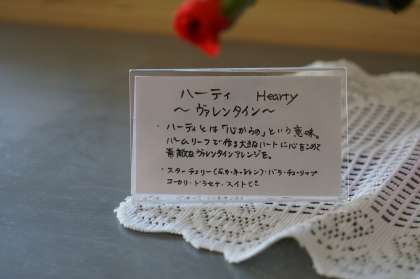 ハーティ Hearty
〜ヴァレンタイン〜
・ハーティとは「心からの」という意味。
パームリーフで作る大きなハートに心をこめて
素敵なヴァレンタインアレンジを。
・スターチェリー(・バラ・チューリップ
ユーカリ・ドラセナ・スイトピー